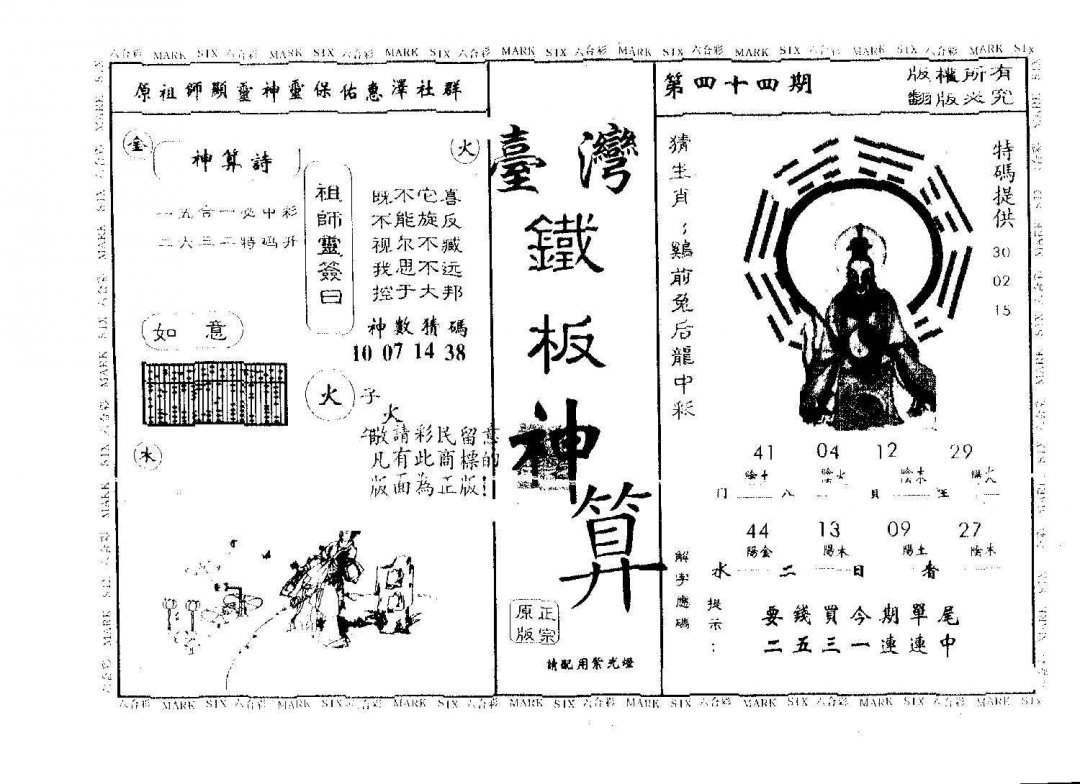 六合彩 MARK SIX 六合彩 MARK SIX 六合彩 MARK SIX 六合彩 MARK SIX 六合彩 MARK SIX 六合彩 MARK SIX 六合彩 MARK SIX 六合彩 MARK SIX
原祖師顯靈神靈保佑惠澤社群
金
火
神算詩
一五合一必中彩
二六三二特码开
祖師靈簽曰
既不它喜
不能旋反
视尔不臧
我思不远
控于大邦
如意
神數猜碼
10 07 14 38
火
子
火
水
敬請彩民留意
凡有此商標的
版面為正版!
臺灣
鐵
板
神
算
正宗
原版
請配用紫光燈
第四十四期
版權所有
翻版必究
猜生肖:鷄前兔后龍中彩
特碼提供
30
02
15
41 04 12 29
陰土 陰火 陰木 陽火
门 八 貝 王
44 13 09 27
陽金 陽木 陽土 陰木
水 二 日 香
解字應碼
提示:
要錢買今期單尾
二五三一連連中
六合彩 MARK SIX 六合彩 MARK SIX 六合彩 MARK SIX 六合彩 MARK SIX 六合彩 MARK SIX 六合彩 MARK SIX 六合彩 MARK SIX 六合彩 MARK SIX